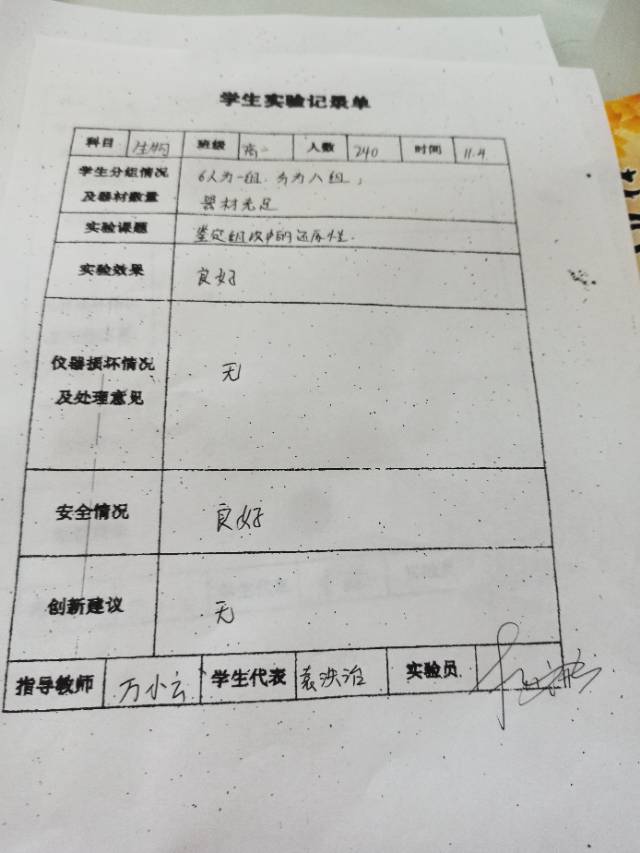 学生实验记录单
科目 生物 班级 高一 人数 240 时间 11.4
学生分组情况 6人为一组,分为八组,
及器材数量 器材充足
实验课题 鉴定组织中的还原性.
实验效果 良好
仪器损坏情况 无
及处理意见
安全情况 良好
创新建议 无
指导教师 万小云 学生代表 袁泱治 实验员